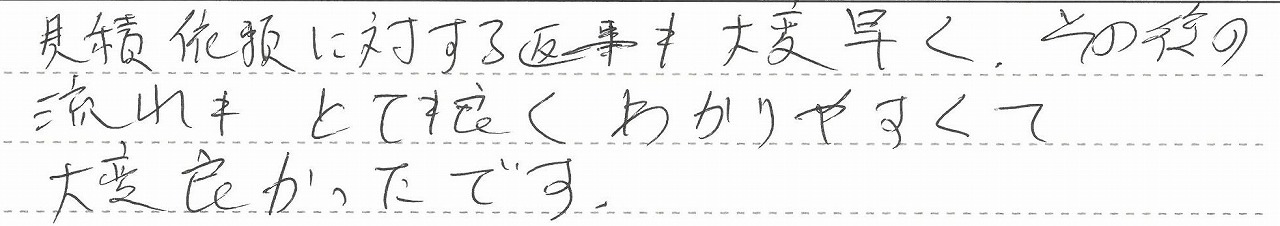 見積依頼に対する返事も大変早く、その後の
流れもとても良くわかりやすくて
大変良かったです。